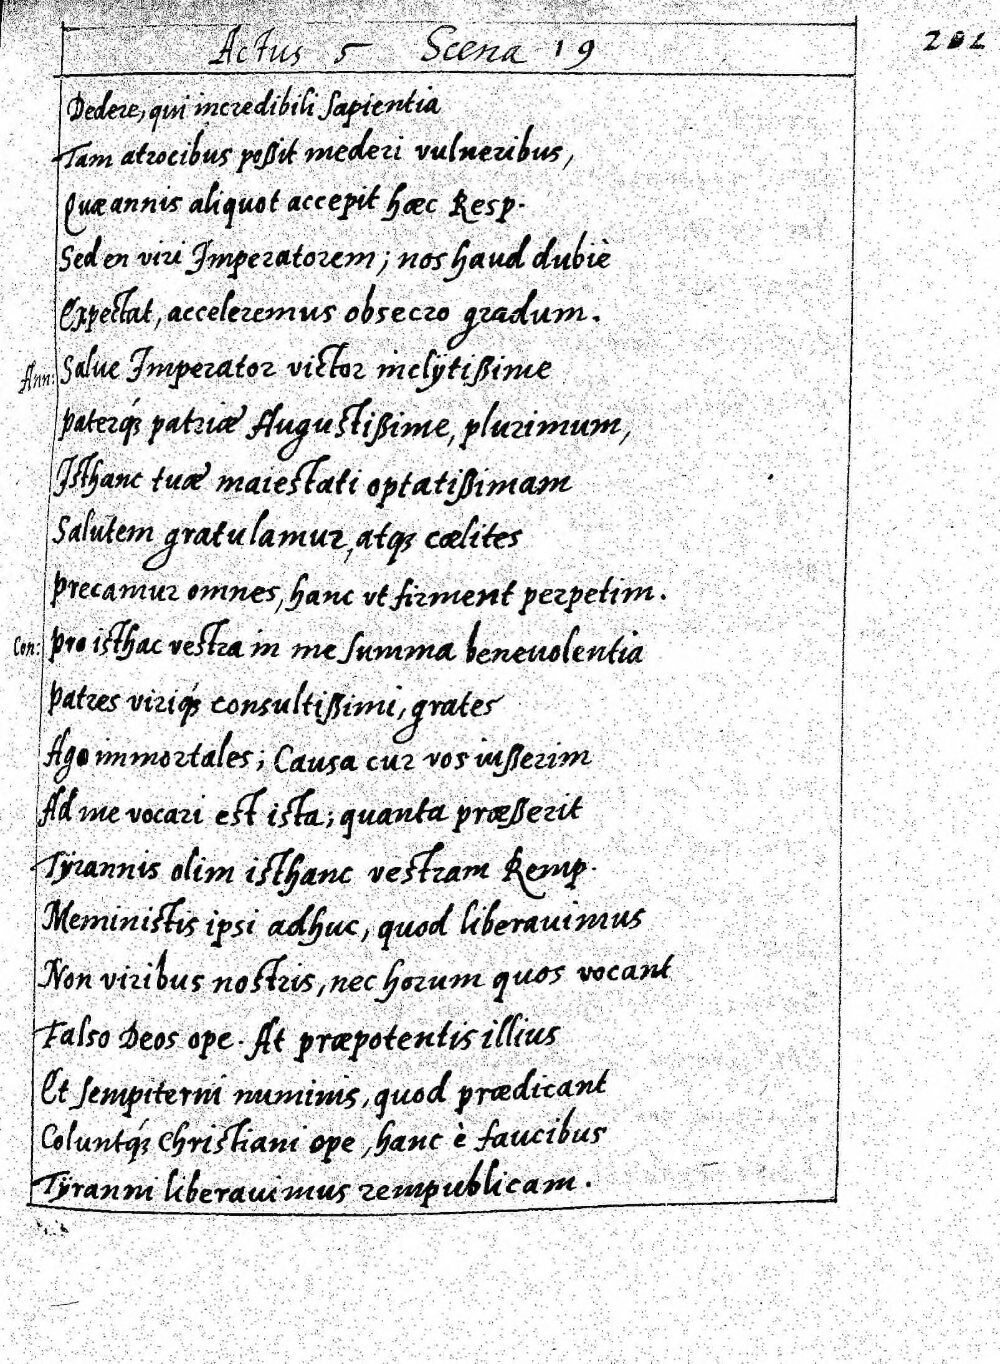 Actus 5 Scena 19
202
Dedere, qui incredibili sapientia
Tam atrocibus poßit mederi vulneribus,
Quæ annis aliquot accepit hæc Resp.
Sed en viri Imperatorem; nos haud dubiè
Expectat, acceleremus obsecro gradum.
Ann: Salue Imperator victor inclÿtißime
Paterq́ꝫ patriæ Augustißime, plurimum,
Isthanc tuæ maiestati optatißimam
Salutem gratulamur, atqꝫ cælites
Precamur omnes, hanc vt firment perpetim.
Con: Pro isthac vestra in me summa beneuolentia
Patres viriq́ꝫ consultißimi, grates
Ago immortales; Causa cur vos iußerim
Ad me vocari est ista; quanta præßerit
Tÿrannis olim isthanc vestram Remp.
Meministis ipsi adhuc, quod liberauimus
Non viribus nostris, nec horum quos vocant
Falso Deos ope. At præpotentis illius
Et sempiterni numinis, quod prædicant
Coluntq́ꝫ Christiani ope, hanc è faucibus
Tÿranni liberauimus rempublicam.